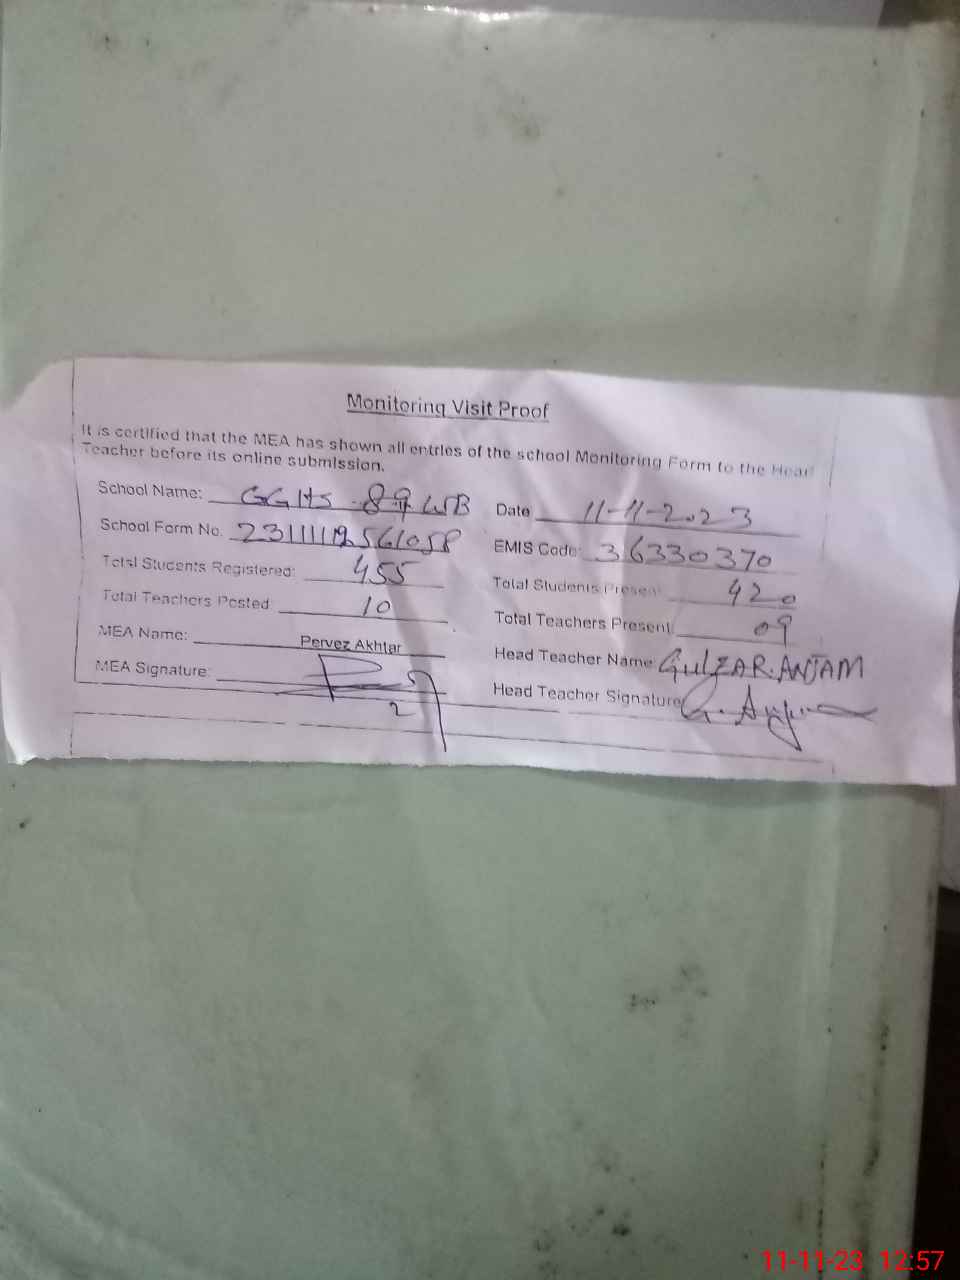 Monitoring Visit Proof
It is certified that the MEA has shown all entries of the school Monitoring Form to the Head
Teacher before its online submission.
School Name: GGHS 89 WB Date 11-11-2023
School Form No. EMIS Code: 36330370
Total Students Registered: 455 Total Students Present 420
Total Teachers Posted: 10 Total Teachers Present: 09
MEA Name: Pervez Akhtar Head Teacher Name: GulZAR.ANJAM
MEA Signature: Head Teacher Signature G. Anjum
2
11-11-23 12:57